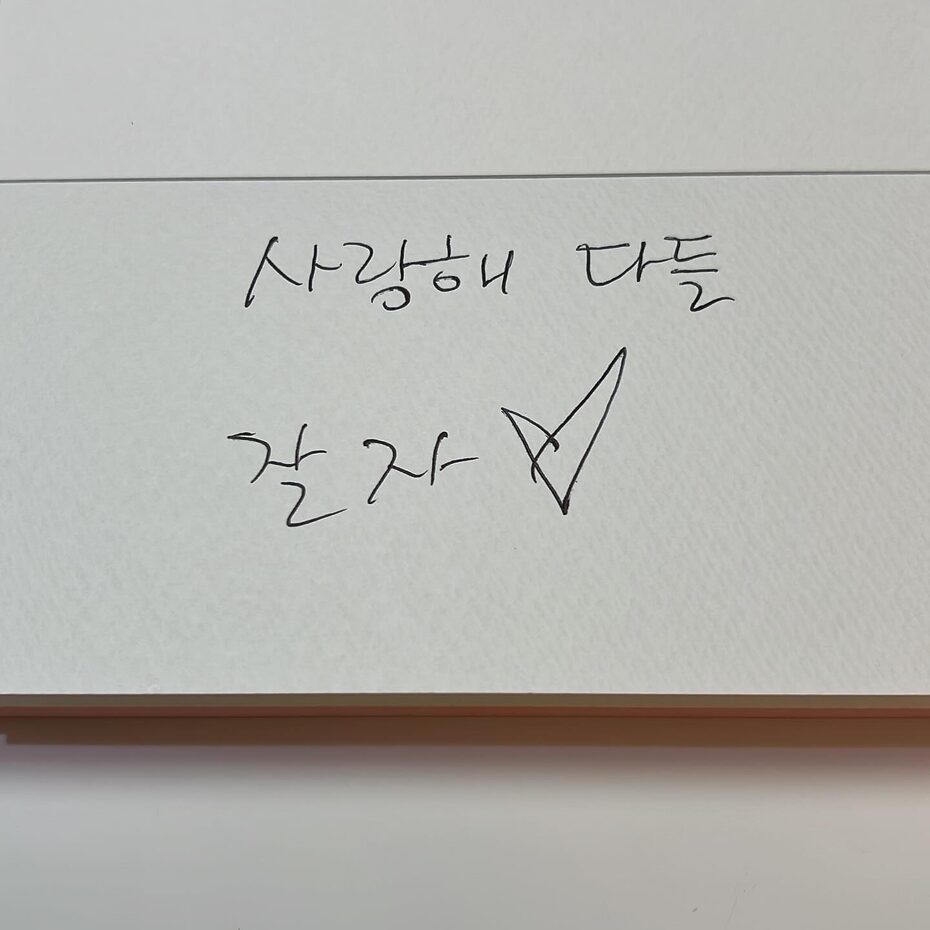 사랑해 다들
잘 자